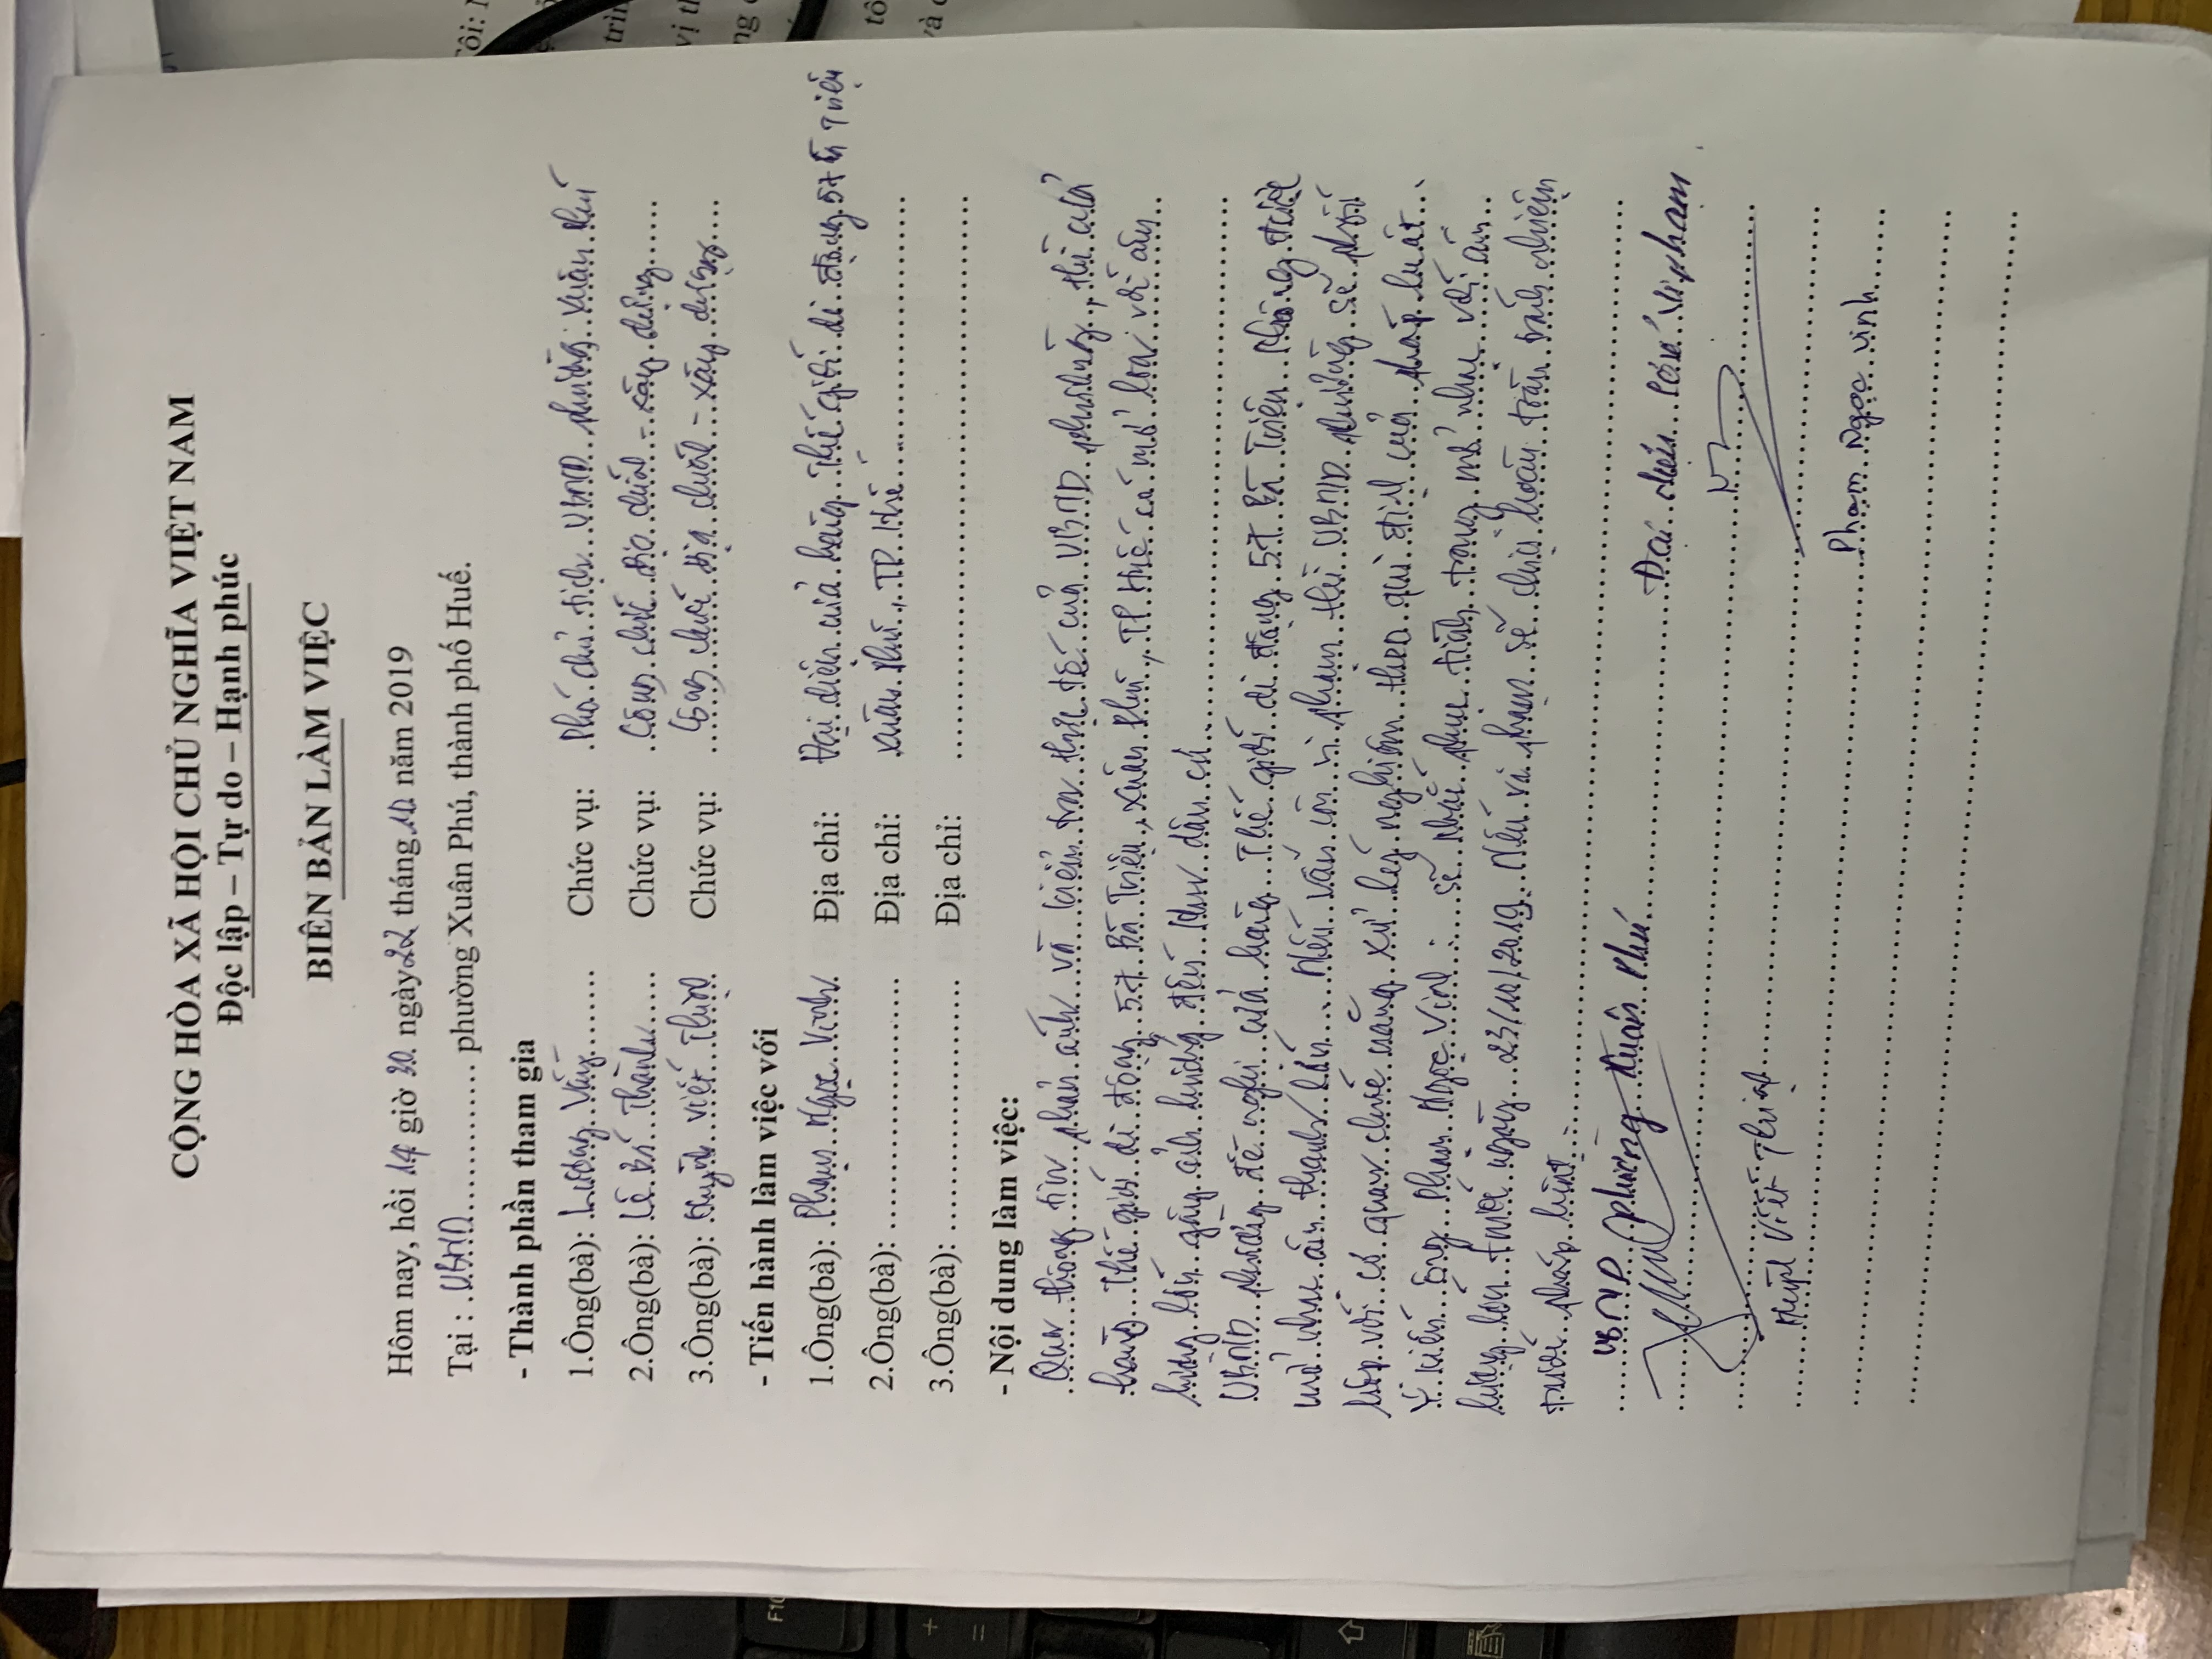 CỘNG HÒA XÃ HỘI CHỦ NGHĨA VIỆT NAM
Độc lập – Tự do – Hạnh phúc
BIÊN BẢN LÀM VIỆC
Hôm nay, hồi 14 giờ 30 ngày 22 tháng 10 năm 2019
Tại : UBND phường Xuân Phú, thành phố Huế.
- Thành phần tham gia
1.Ông(bà): Lương Vững Chức vụ: Phó chủ tịch UBND phường Xuân Phú
2.Ông(bà): Lê Bá Thành Chức vụ: Công chức địa chính - xây dựng
3.Ông(bà): Huỳnh Viết Chức vụ: Công chức địa chính - xây dựng
- Tiến hành làm việc với
1.Ông(bà): Phạm Ngọc Vinh Địa chỉ: Đại diện cửa hàng Thế giới di động 57 Bà Triệu
2.Ông(bà): Địa chỉ: Xuân Phú, TP Huế
3.Ông(bà): Địa chỉ:
- Nội dung làm việc:
Qua thông tin phản ánh và kiểm tra thực tế của UBND phường, thì cửa
hàng Thế giới di động 57 Bà Triệu, Xuân Phú, TP Huế có mở loa với âm
lượng lớn gây ảnh hưởng đến khu dân cư.
UBND phường đề nghị cửa hàng Thế giới di động 57 Bà Triệu không được
mở nhạc âm thanh lớn. Nếu vẫn còn vi phạm thì UBND phường sẽ phối
hợp với cơ quan chức năng xử lý nghiêm theo qui định của pháp luật.
Ý kiến ông Phạm Ngọc Vinh: sẽ khắc phục tình trạng mở nhạc với âm
lượng lớn trước ngày 23/10/2019. Nếu vi phạm sẽ chịu hoàn toàn trách nhiệm
trước pháp luật.
UBND phường Xuân Phú Đại diện cơ sở vi phạm
Huỳnh Viết
Phạm Ngọc Vinh